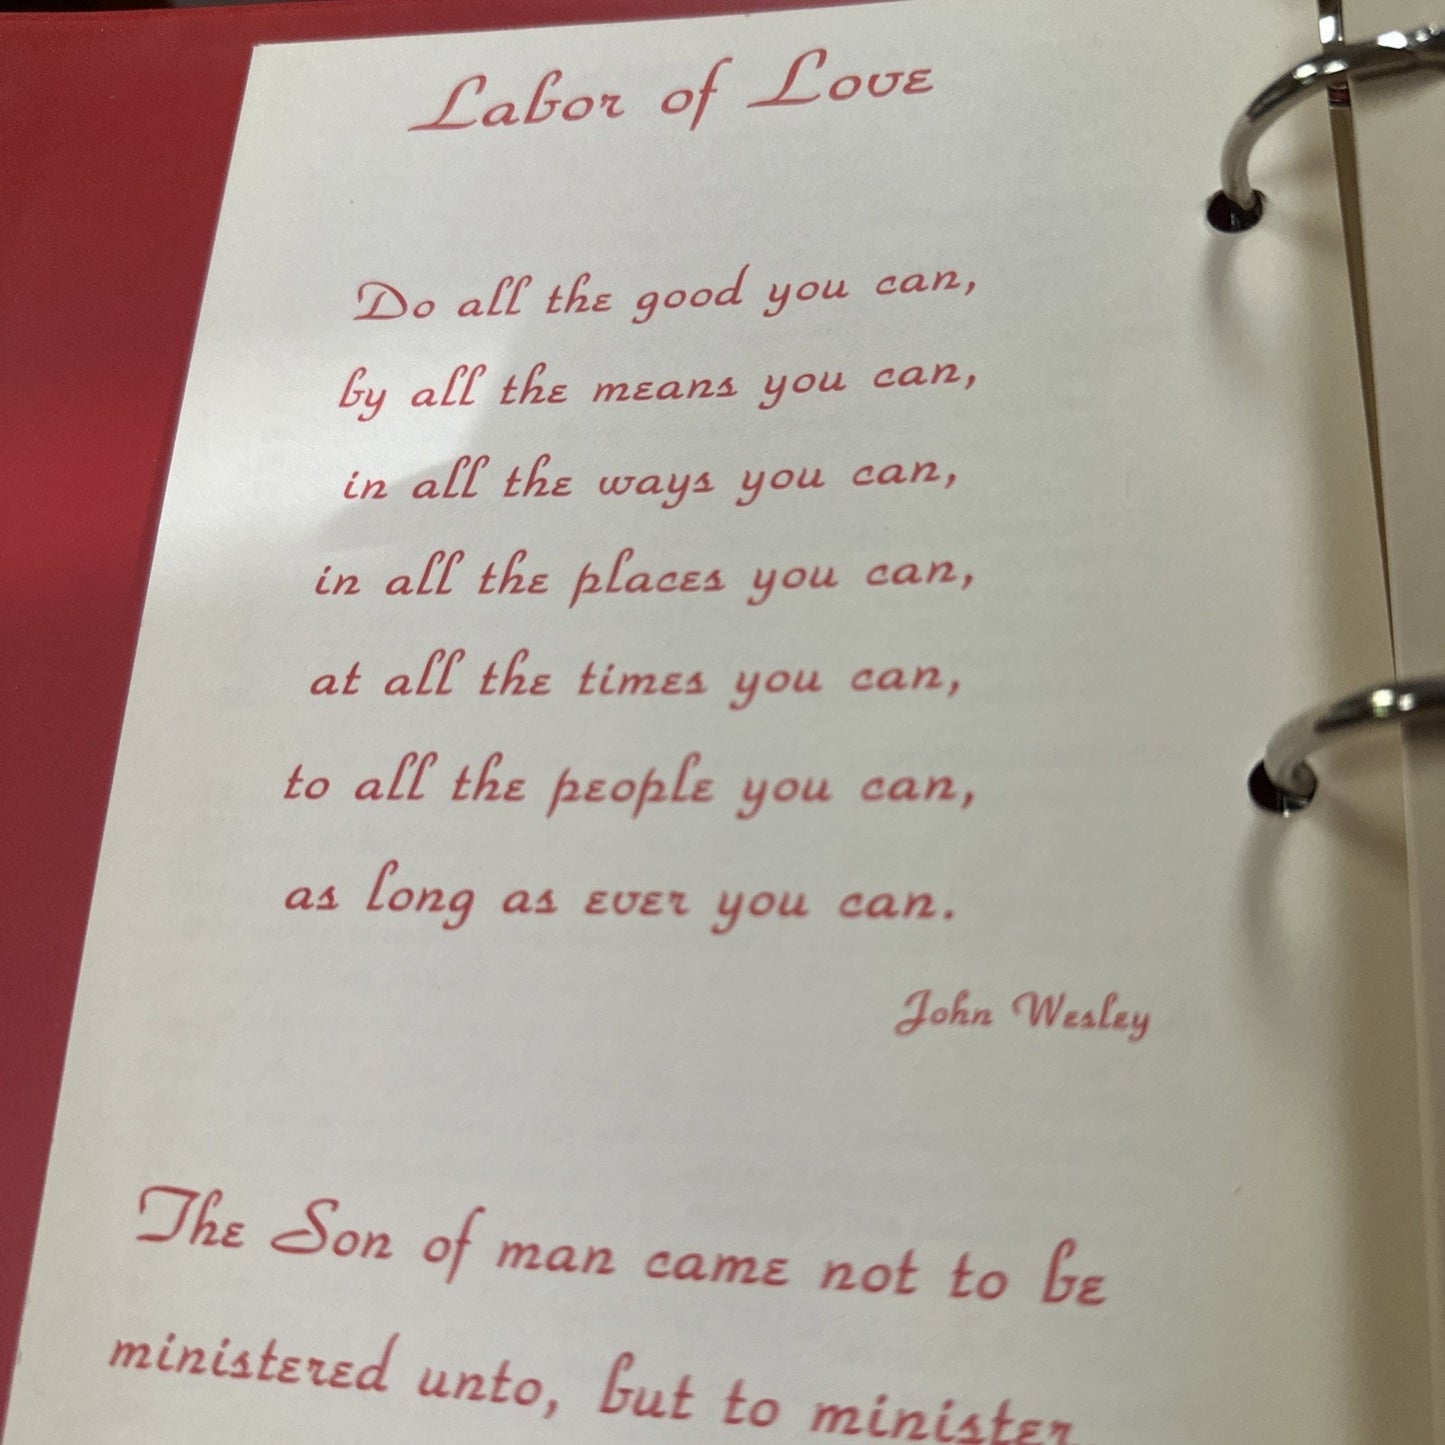 Labor of Love
Do all the good you can,
by all the means you can,
in all the ways you can,
in all the places you can,
at all the times you can,
to all the people you can,
as long as ever you can.
John Wesley
The Son of man came not to be
ministered unto, but to minister